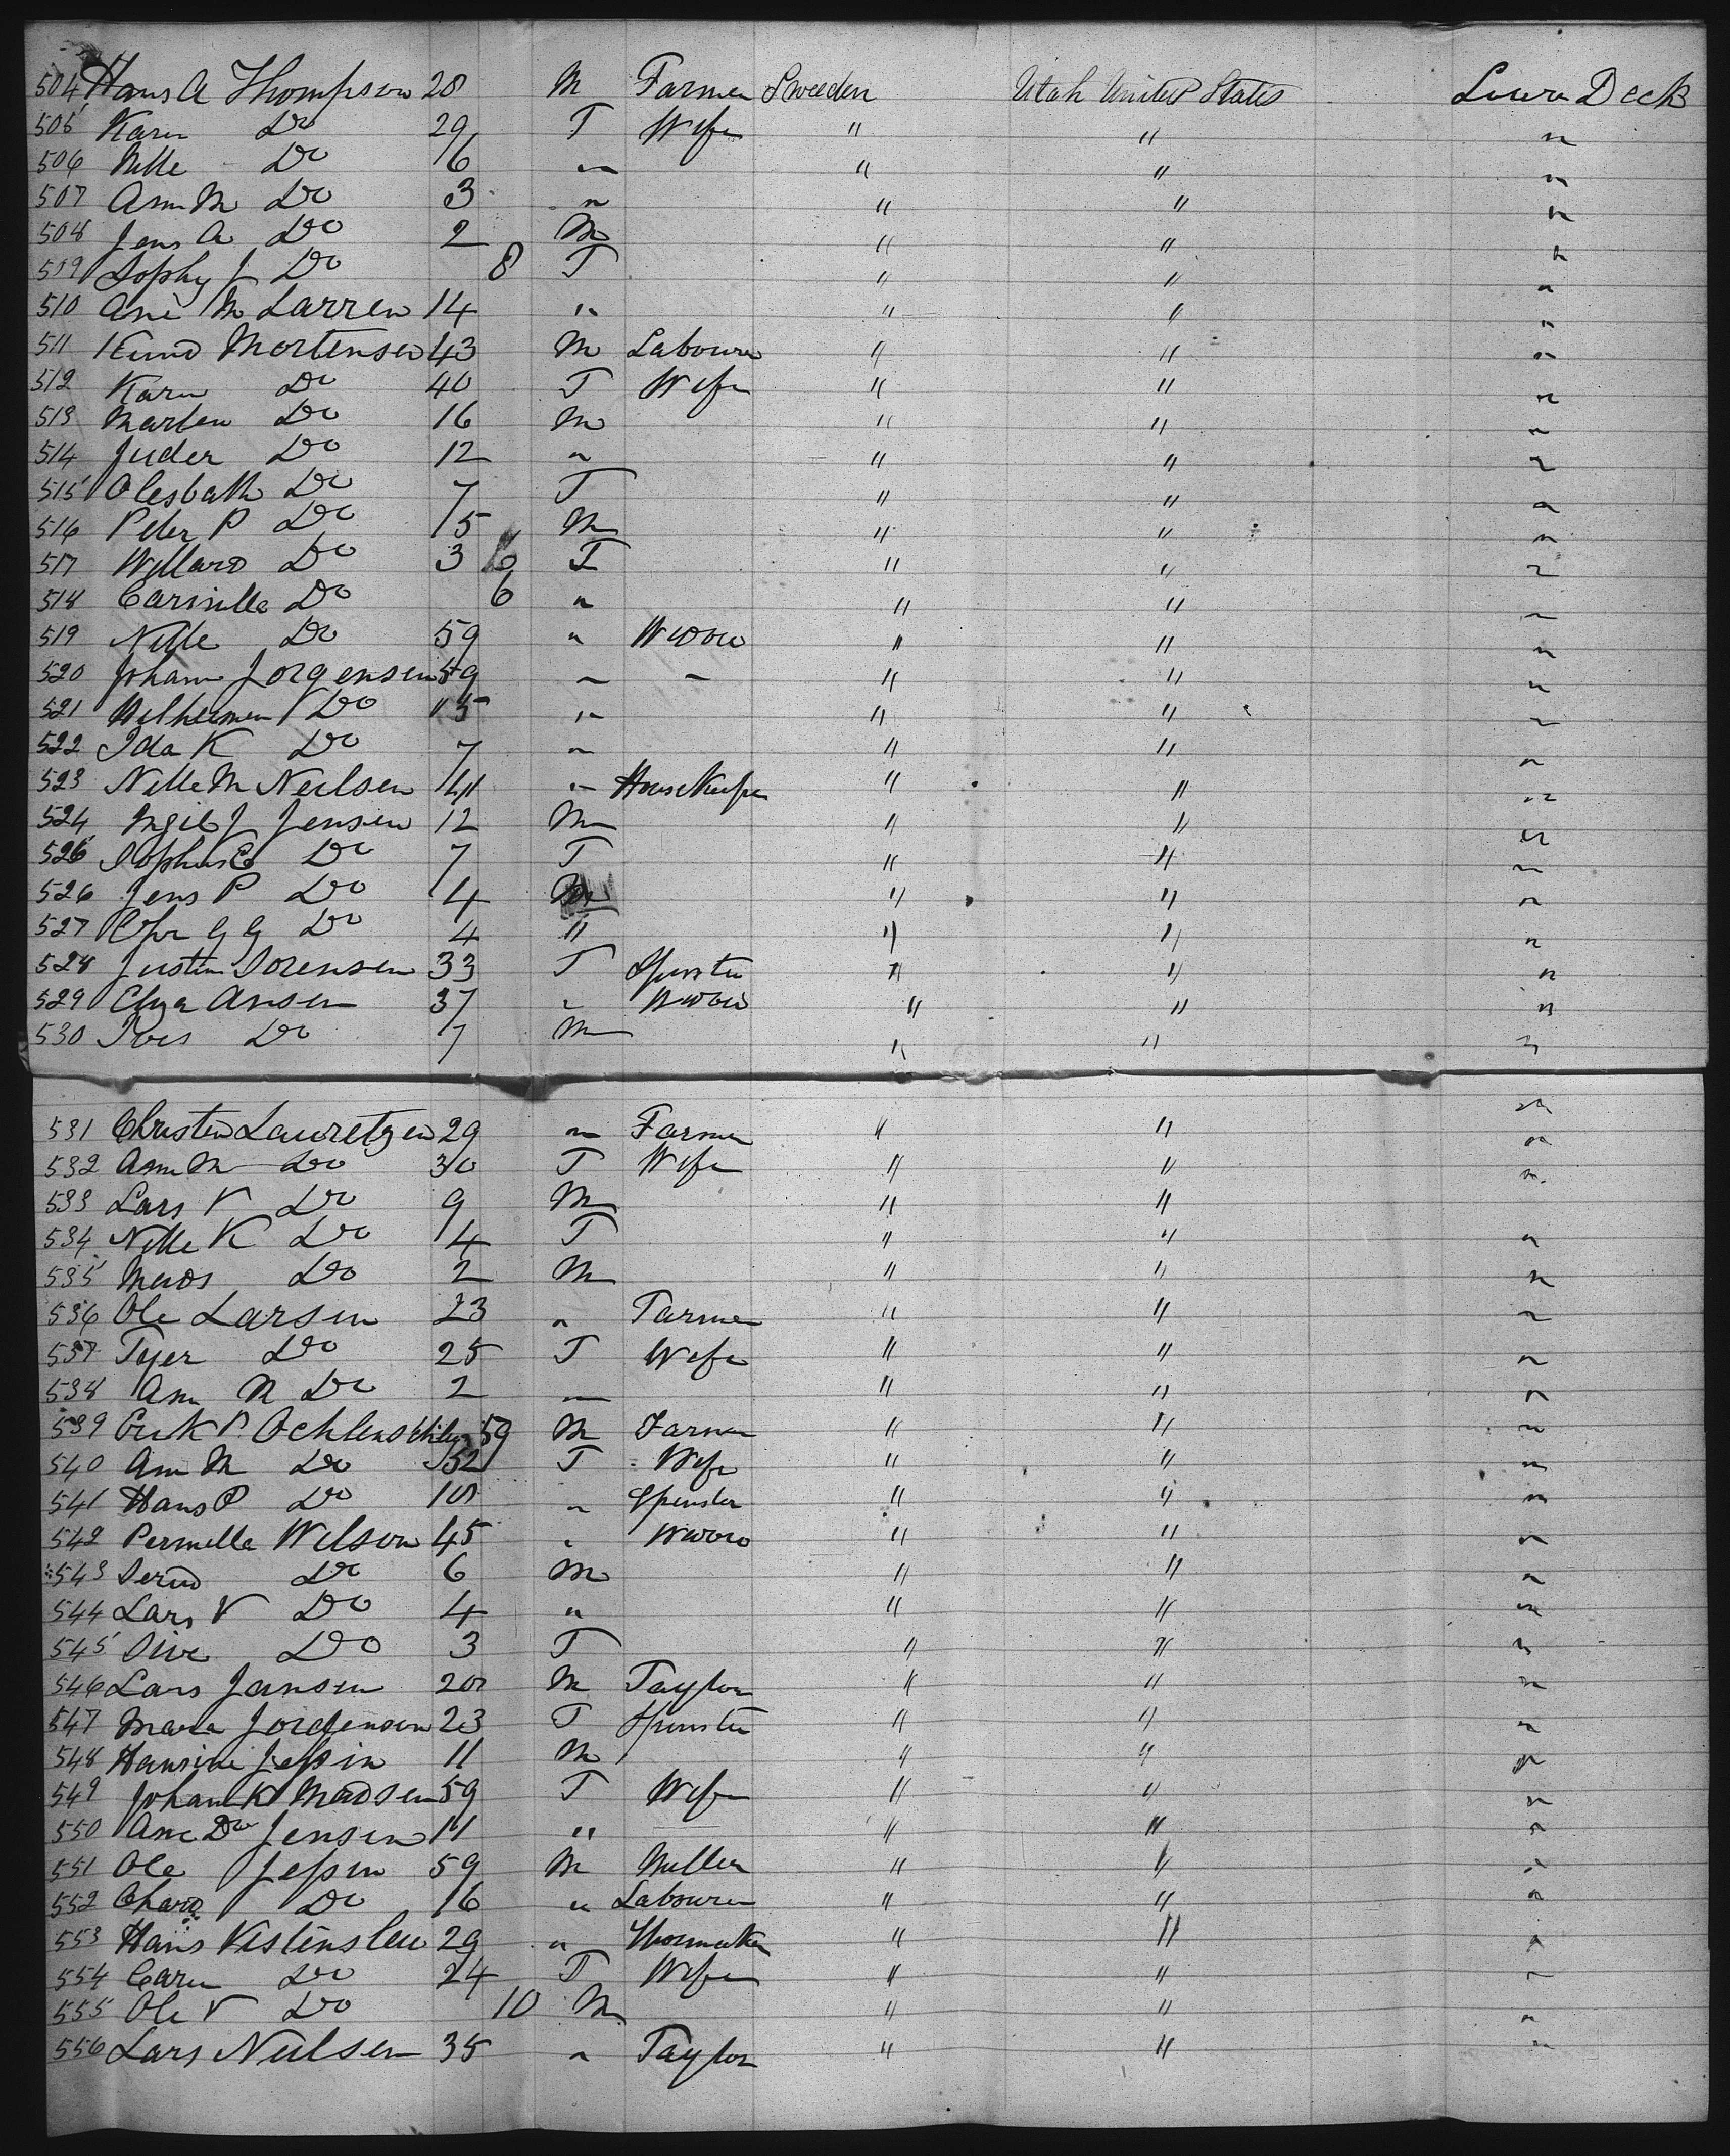 504 Hans A Thompson 28 M Farmer Sweeden Utah United States Lower Deck
505 Karn Do 29 F Wife " " "
506 Nille Do 6 " " " "
507 Ann M Do 3 " " " "
508 Jens A Do 2 M " " "
509 Sophy J Do 8 F " " "
510 Ane M Larren 14 " " " "
511 Knud Mortensen 43 M Labourer " " "
512 Karn Do 40 F Wife " " "
513 Marten Do 16 M " " "
514 Juder Do 12 " " " "
515 Olesbath Do 7 F " " "
516 Peter P Do 5 M " " "
517 Willard Do 3 F " " "
518 Carnille Do 6 " " " "
519 Nille Do 59 " Widow " " "
520 Johann Jorgensen 59 " " " " "
521 Wilhelmen Do 15 " " " "
522 Ida K Do 7 " " " "
523 Nille M Neilsen 41 " House Keeper " " "
524 Ingil J Jensen 12 M " " "
526 Sophus C Do 7 F " " "
526 Jens P Do 4 M " " "
527 Chr G G Do 4 " " " "
528 Justin Sorensen 33 F Spinster " " "
529 Eliza Ansen 37 " Widow " " "
530 Ives Do 7 M " " "
531 Christen Lauretzen 29 " Farmer " " "
532 Ann M Do 30 F Wife " " "
533 Lars V Do 9 M " " "
534 Nille K Do 4 F " " "
535 Mads Do 2 M " " "
536 Ole Larsen 23 " Farmer " " "
537 Tyer Do 25 F Wife " " "
538 Ann M Do 2 " " " "
539 Erik P. Ochlenschleger 59 M Farmer " " "
540 Ann M Do 52 F Wife " " "
541 Hans P Do 18 " Spinster " " "
542 Pernille Wilson 45 " Widow " " "
543 Serud Do 6 M " " "
544 Lars V Do 4 " " " "
545 Sive Do 3 F " " "
546 Lars Jansen 20 M Taylor " " "
547 Maria Jordensen 23 F Spinster " " "
548 Hansine Jessin 11 M " " "
549 Johann K Madsen 59 F Wife " " "
550 Ane Do Jensen 11 " " " "
551 Ole Jessin 59 M Miller " " "
552 Chard Do 16 " Labourer " " "
553 Hans Kistensleu 29 " Shoemaker " " "
554 Caren Do 24 F Wife " " "
555 Ole V Do 10 M " " "
556 Lars Neilsen 35 " Taylor " " "